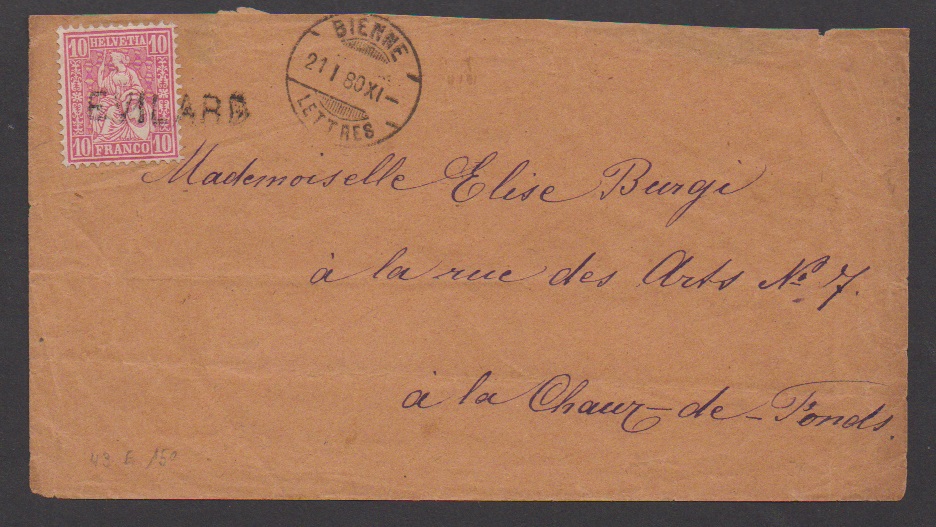 10 HELVETIA 10
10 FRANCO 10
EVILARD
BIENNE
21 I 80 XI–
LETTRES
Mademoiselle Elise Burgi
à la rue des Arts No 7.
à la Chaux-de-Fonds.